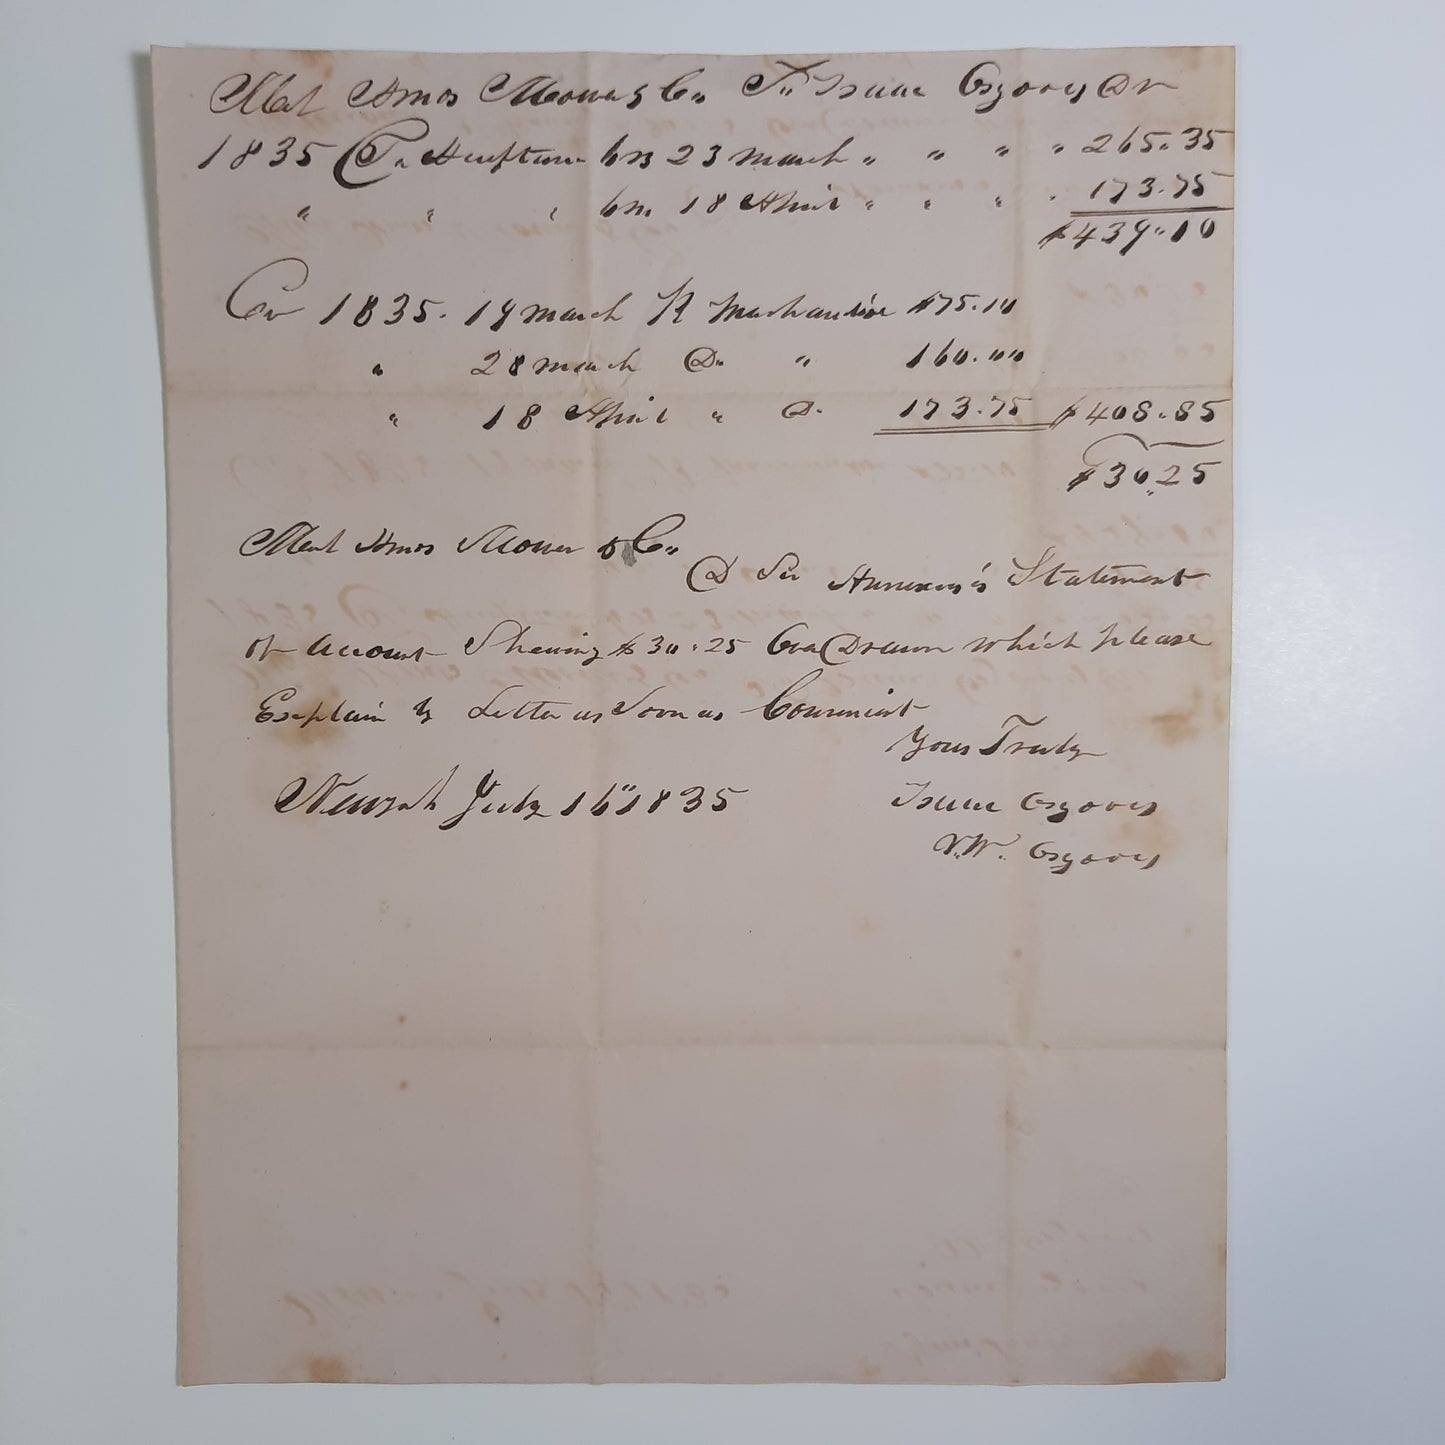 Amos Mower & Co. To Isaac Osgood Dr
1835 To 23 March " " " " 265.35
" " " 18 April " " " " 173.75
$439.10
Cr 1835. 19 March Merchandise $75.10
" 28 March Do " 160.00
" 18 April " Do. 173.75 $408.85
$30.25
Amos Mower & Co.
D Sir Statement
of account Shewing $30.25 Over Drawn which please
Explain by Letter as Soon as Convenient
Yours Truly
July 16" 1835 Isaac Osgood
V.W. Osgood